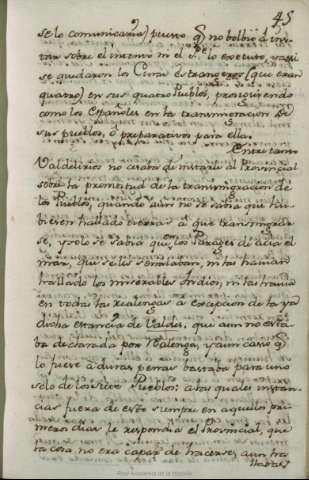 45
se lo comunicaría) puesto q no bolbió á ins-
tar sobre el mismo ni el P.e lo executó, y assi
se quedaron los Curas estrangeros (que eran
quatro) en sus quatro Pueblos, prosiguiendo
como los Españoles en la transmigracion de
sus pueblos, ó preparativos para ella.
Entre tanto
Valdelirios no cesaba de instarle al Provincial
sobre la promtitud de la transmigracion de
los Pueblos, quando aun no se sabia que hu-
biesen hallado tierras á que transmigrar-
se, y solo se sabia que los Parages de acia el
mar, que se les señalaban, ni las havian
hallado los miserables Indios, ni las havia
en todas las realengas á excepcion de la ya
dicha estancia de Valdes, que aun no esta-
ba declarada por realenga, y aun caso q
lo fuese á duras penas bastaba para uno
solo de los siete Pueblos: a las quales instan-
cias fuera de esto siempre en aquellos pri-
meros dias le respondia el Provincial, que
tal cosa no era capaz de hacerse, aun tra-
Real Academia de la Historia